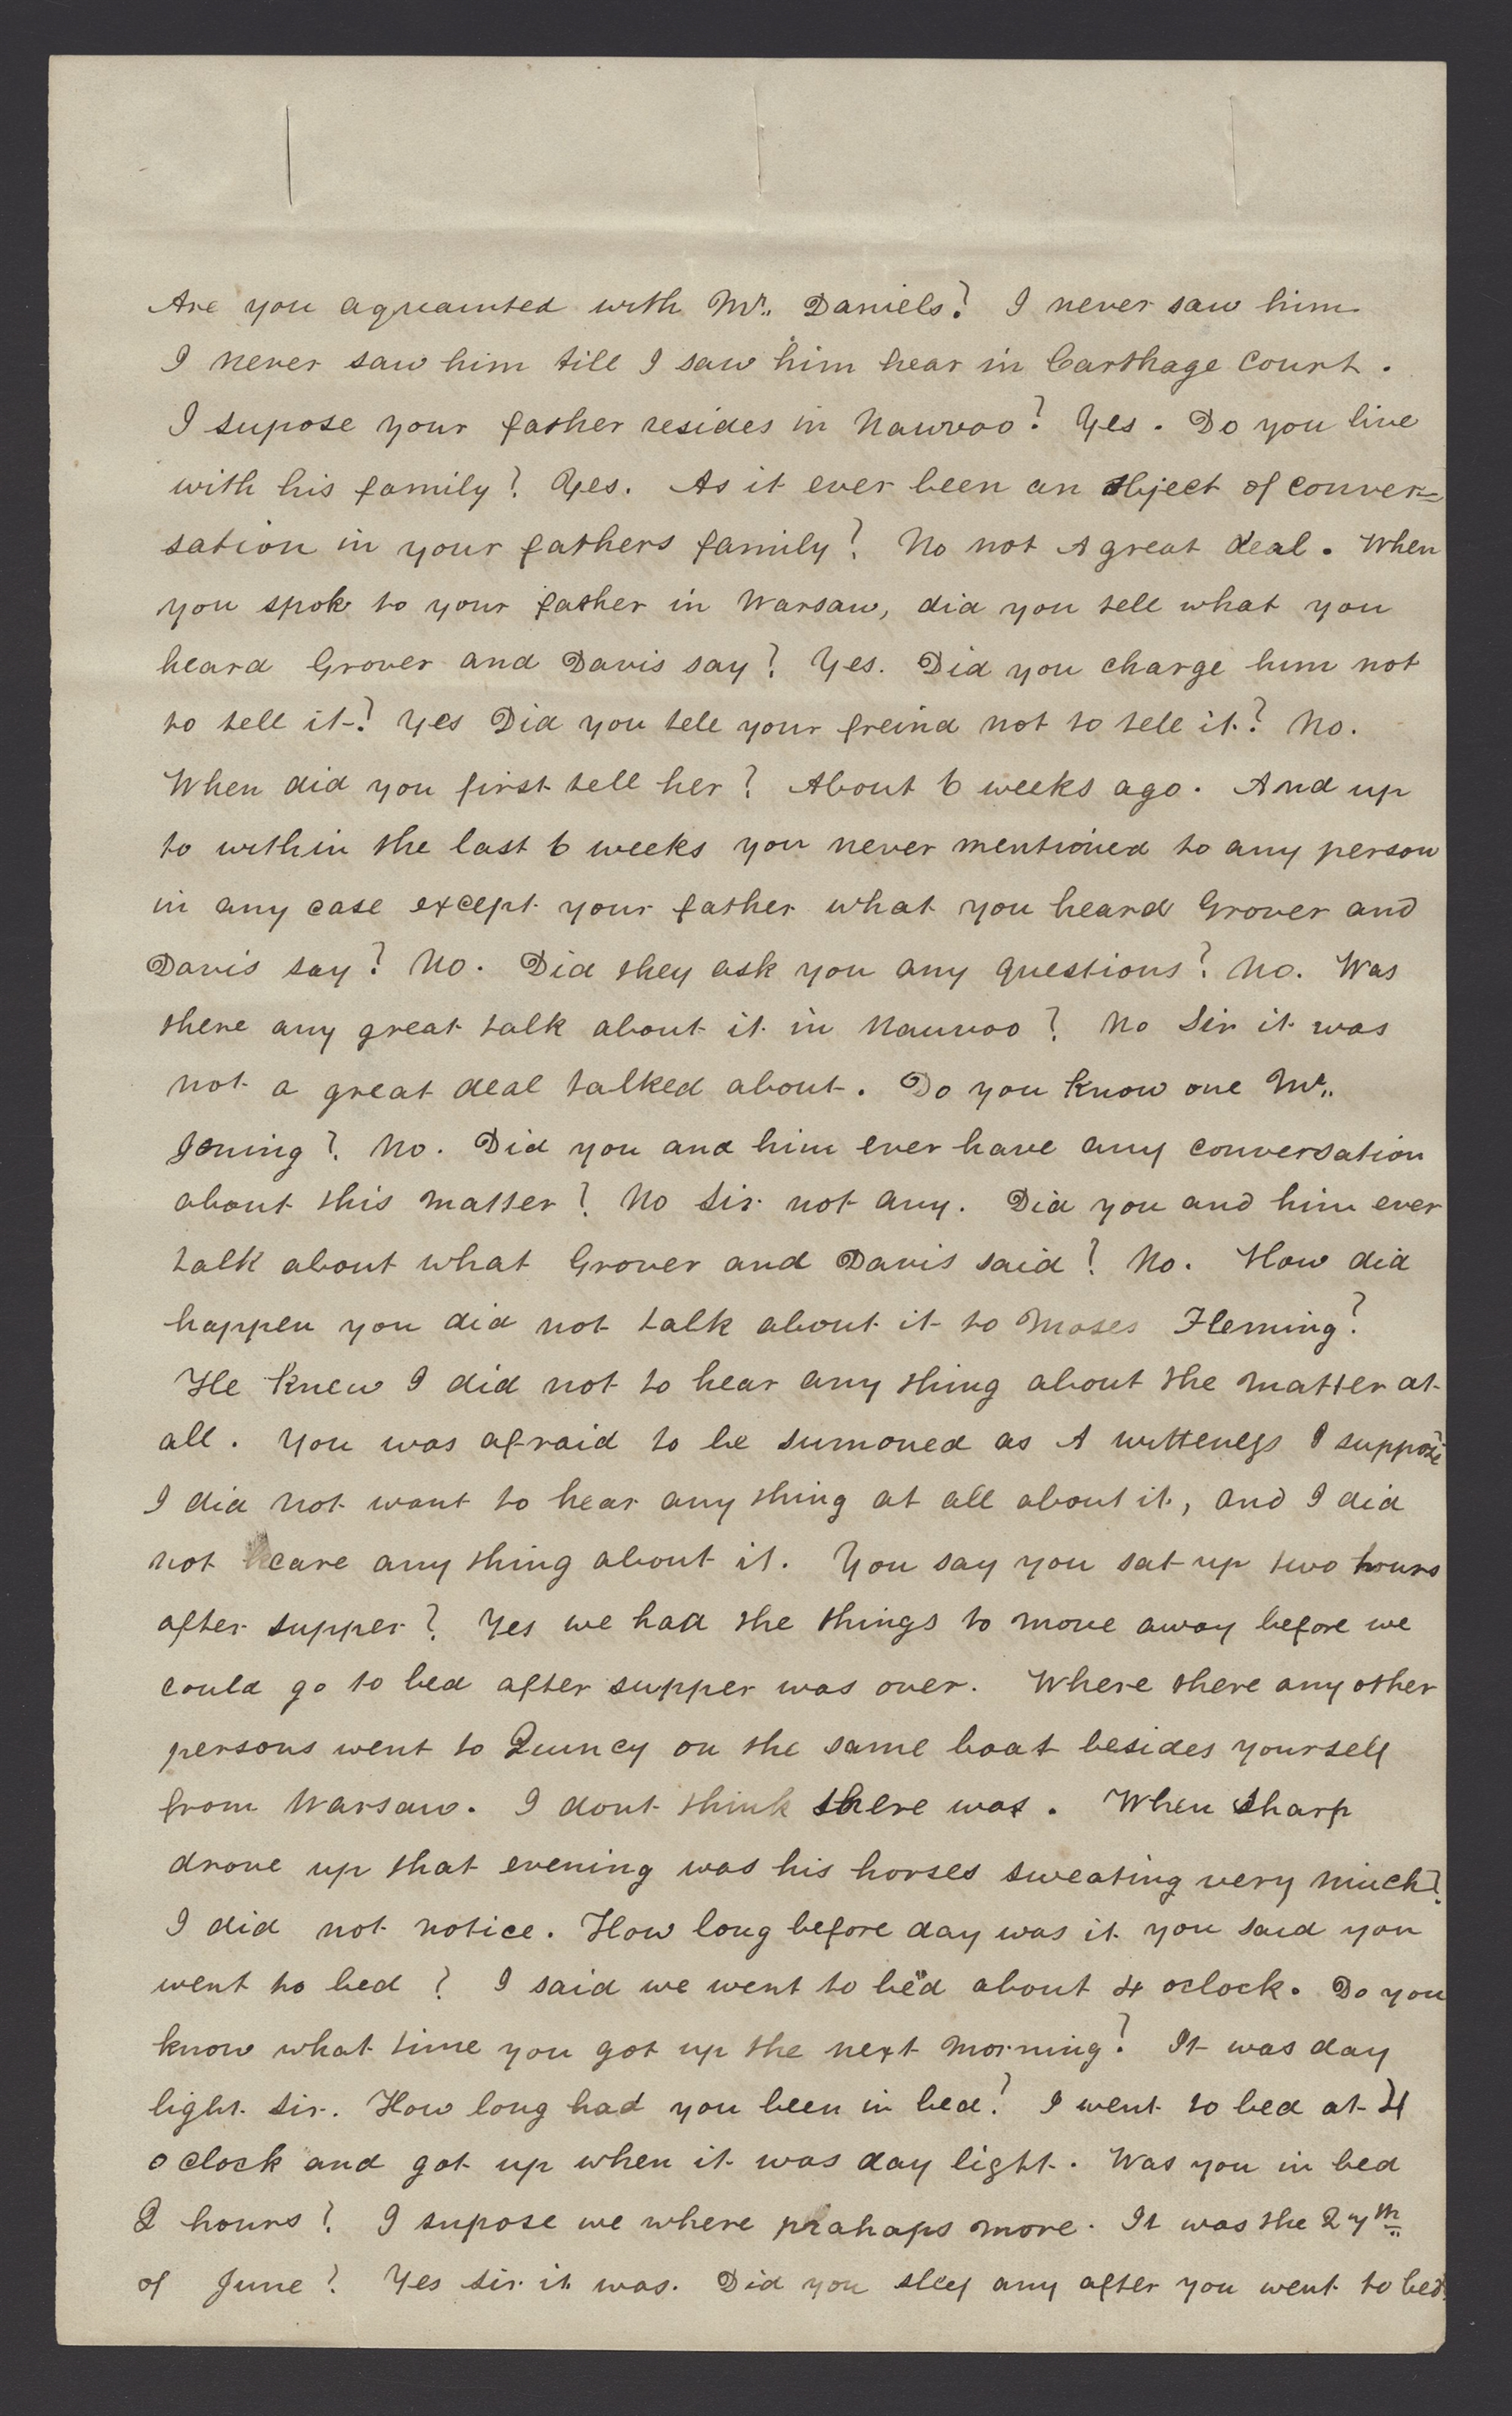 Are you aquainted with Mr. Daniels? I never saw him
I never saw him till I saw him hear in Carthage Court.
I supose your father resides in Nauvoo? Yes. Do you live
with his family? Yes. As it ever been an object of conver=
sation in your fathers family? No not A great deal. When
you spok to your father in Warsaw, did you tell what you
heard Grover and Davis say? Yes. Did you charge him not
to tell it? Yes Did you tell your freind not to tell it? No.
When did you first tell her? About 6 weeks ago. And up
to within the last 6 weeks you never mentioned to any person
in any case except your father what you heard Grover and
Davis say? No. Did they ask you any questions? No. Was
there any great talk about it in Nauvoo? No Sir it was
not a great deal talked about. Do you know one Mr.
Joning? No. Did you and him ever have any conversation
about this matter? No Sir not any. Did you and him ever
talk about what Grover and Davis said? No. How did
happen you did not talk about it to Moses Fleming?
He knew I did not to hear any thing about the matter at
all. You was afraid to be sumoned as A witteness I suppose
I did not want to hear any thing at all about it, and I did
not care any thing about it. You say you sat up two hours
after supper? Yes we had the things to move away before we
could go to bed after supper was over. Where there any other
persons went to Quincy on the same boat besides yourself
from Warsaw. I dont think there was. When Sharp
drove up that evening was his horses sweating very much?
I did not notice. How long before day was it you said you
went to bed? I said we went to bed about 4 oclock. Do you
know what time you got up the next morning? It was day
light Sir. How long had you been in bed? I went to bed at 4
oclock and got up when it was day light. Was you in bed
2 hours? I supose we where prahaps more. It was the 27th
of June? Yes Sir it was. Did you sleep any after you went to bed